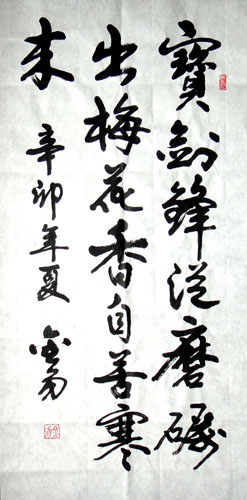 寶劍鋒從磨礪
出梅花香自苦寒
来
辛卯年夏